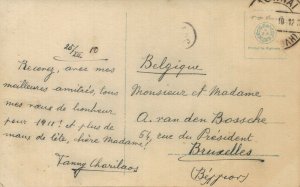 25/XII 10
Recevez, avec mes
meilleures amitiés, tous
mes vœux de bonheur
pour 1911! et plus de
maux de tête, chère Madame!
Fanny Charilaos
Belgique
Monsieur et Madame
A. van den Bossche
54, rue du Président
Bruxelles